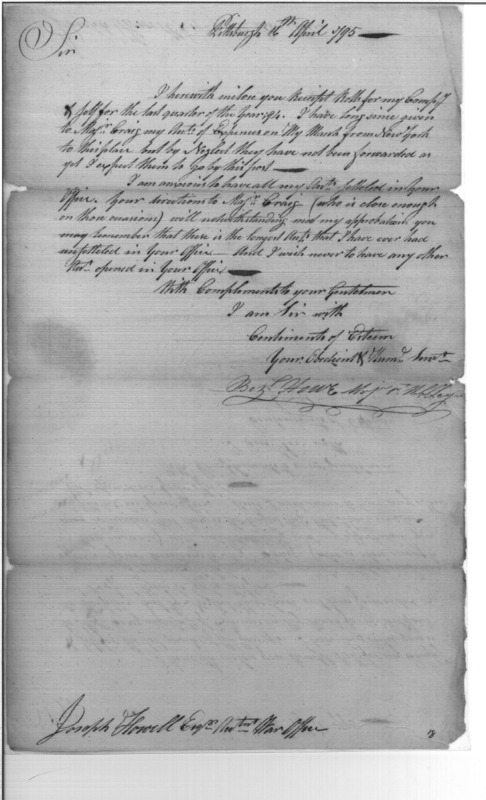 Pittsburgh 16th April 1795
Sir
I herewith inclose you Receipt Rolls for my Compy
& self for the last quarter of the Year 94. I have long since given
to Majr. Craig my Acct. of Expences on My March from New York
to this place but by Neglect they have not been forwarded as
yet I expect them to go by this post
I am anxious to have all my Accts. settled in Your
Office. Your directions to Majr. Craig (who is close enough
on those occasions) will notwithstanding meet my approbation you
may remember that these is the longest Accts. that I have ever had
unsettled in Your Office And I wish never to have any other
Acct. opened in Your Office
With Compliments to your Gentelmen
I am Sir with
Centiments of Esteem
Your Obedient & Humb. Servt.
Bezl. Howe Majr.
Joseph Howell Esqr. Acctnt War Office